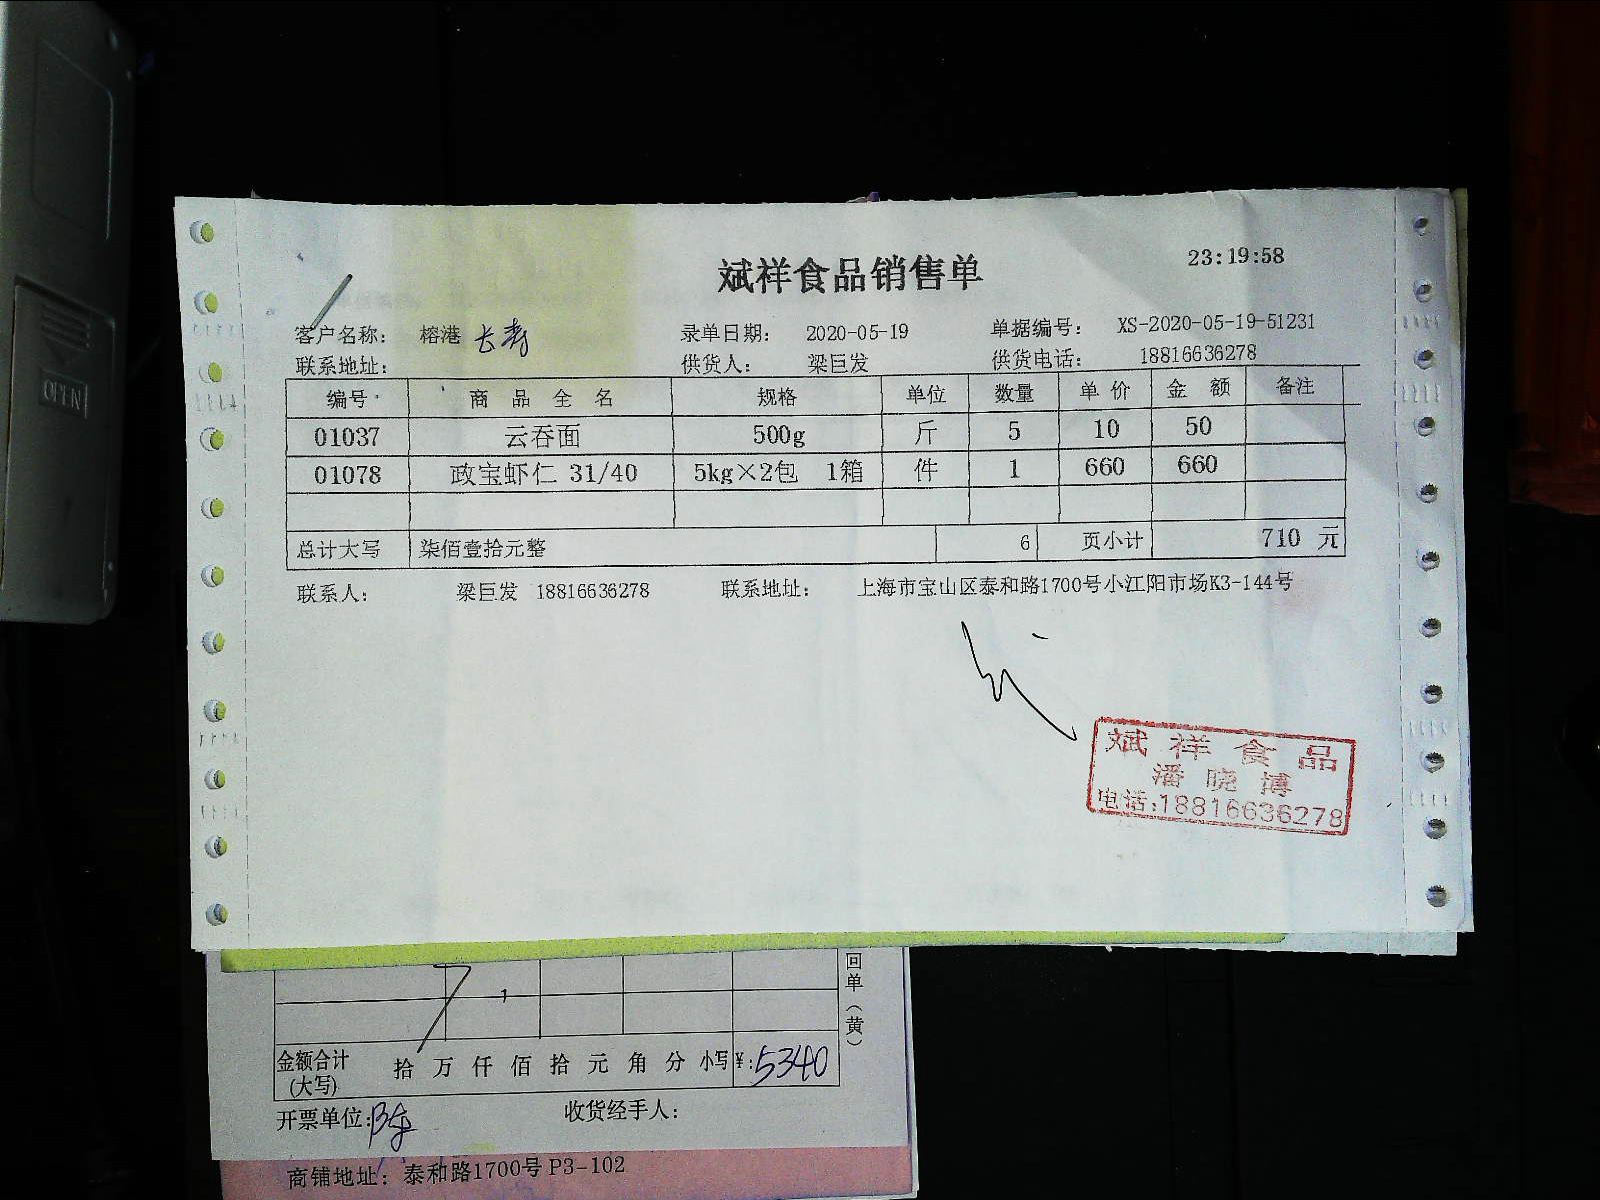 OPEN
斌祥食品销售单
23:19:58
客户名称： 榕港 长寿 录单日期： 2020-05-19 单据编号： XS-2020-05-19-51231
联系地址： 供货人： 梁巨发 供货电话： 18816636278
编号 商品全名 规格 单位 数量 单价 金额 备注
01037 云吞面 500g 斤 5 10 50
01078 政宝虾仁 31/40 5kg×2包 1箱 件 1 660 660
总计大写 柒佰壹拾元整 6 页小计 710 元
联系人： 梁巨发 18816636278 联系地址： 上海市宝山区泰和路1700号小江阳市场K3-144号
斌祥食品
潘晓博
电话:18816636278
回单（黄）
金额合计(大写) 拾 万 仟 佰 拾 元 角 分 小写¥:5340
开票单位:陈 收货经手人：
商铺地址：泰和路1700号P3-102